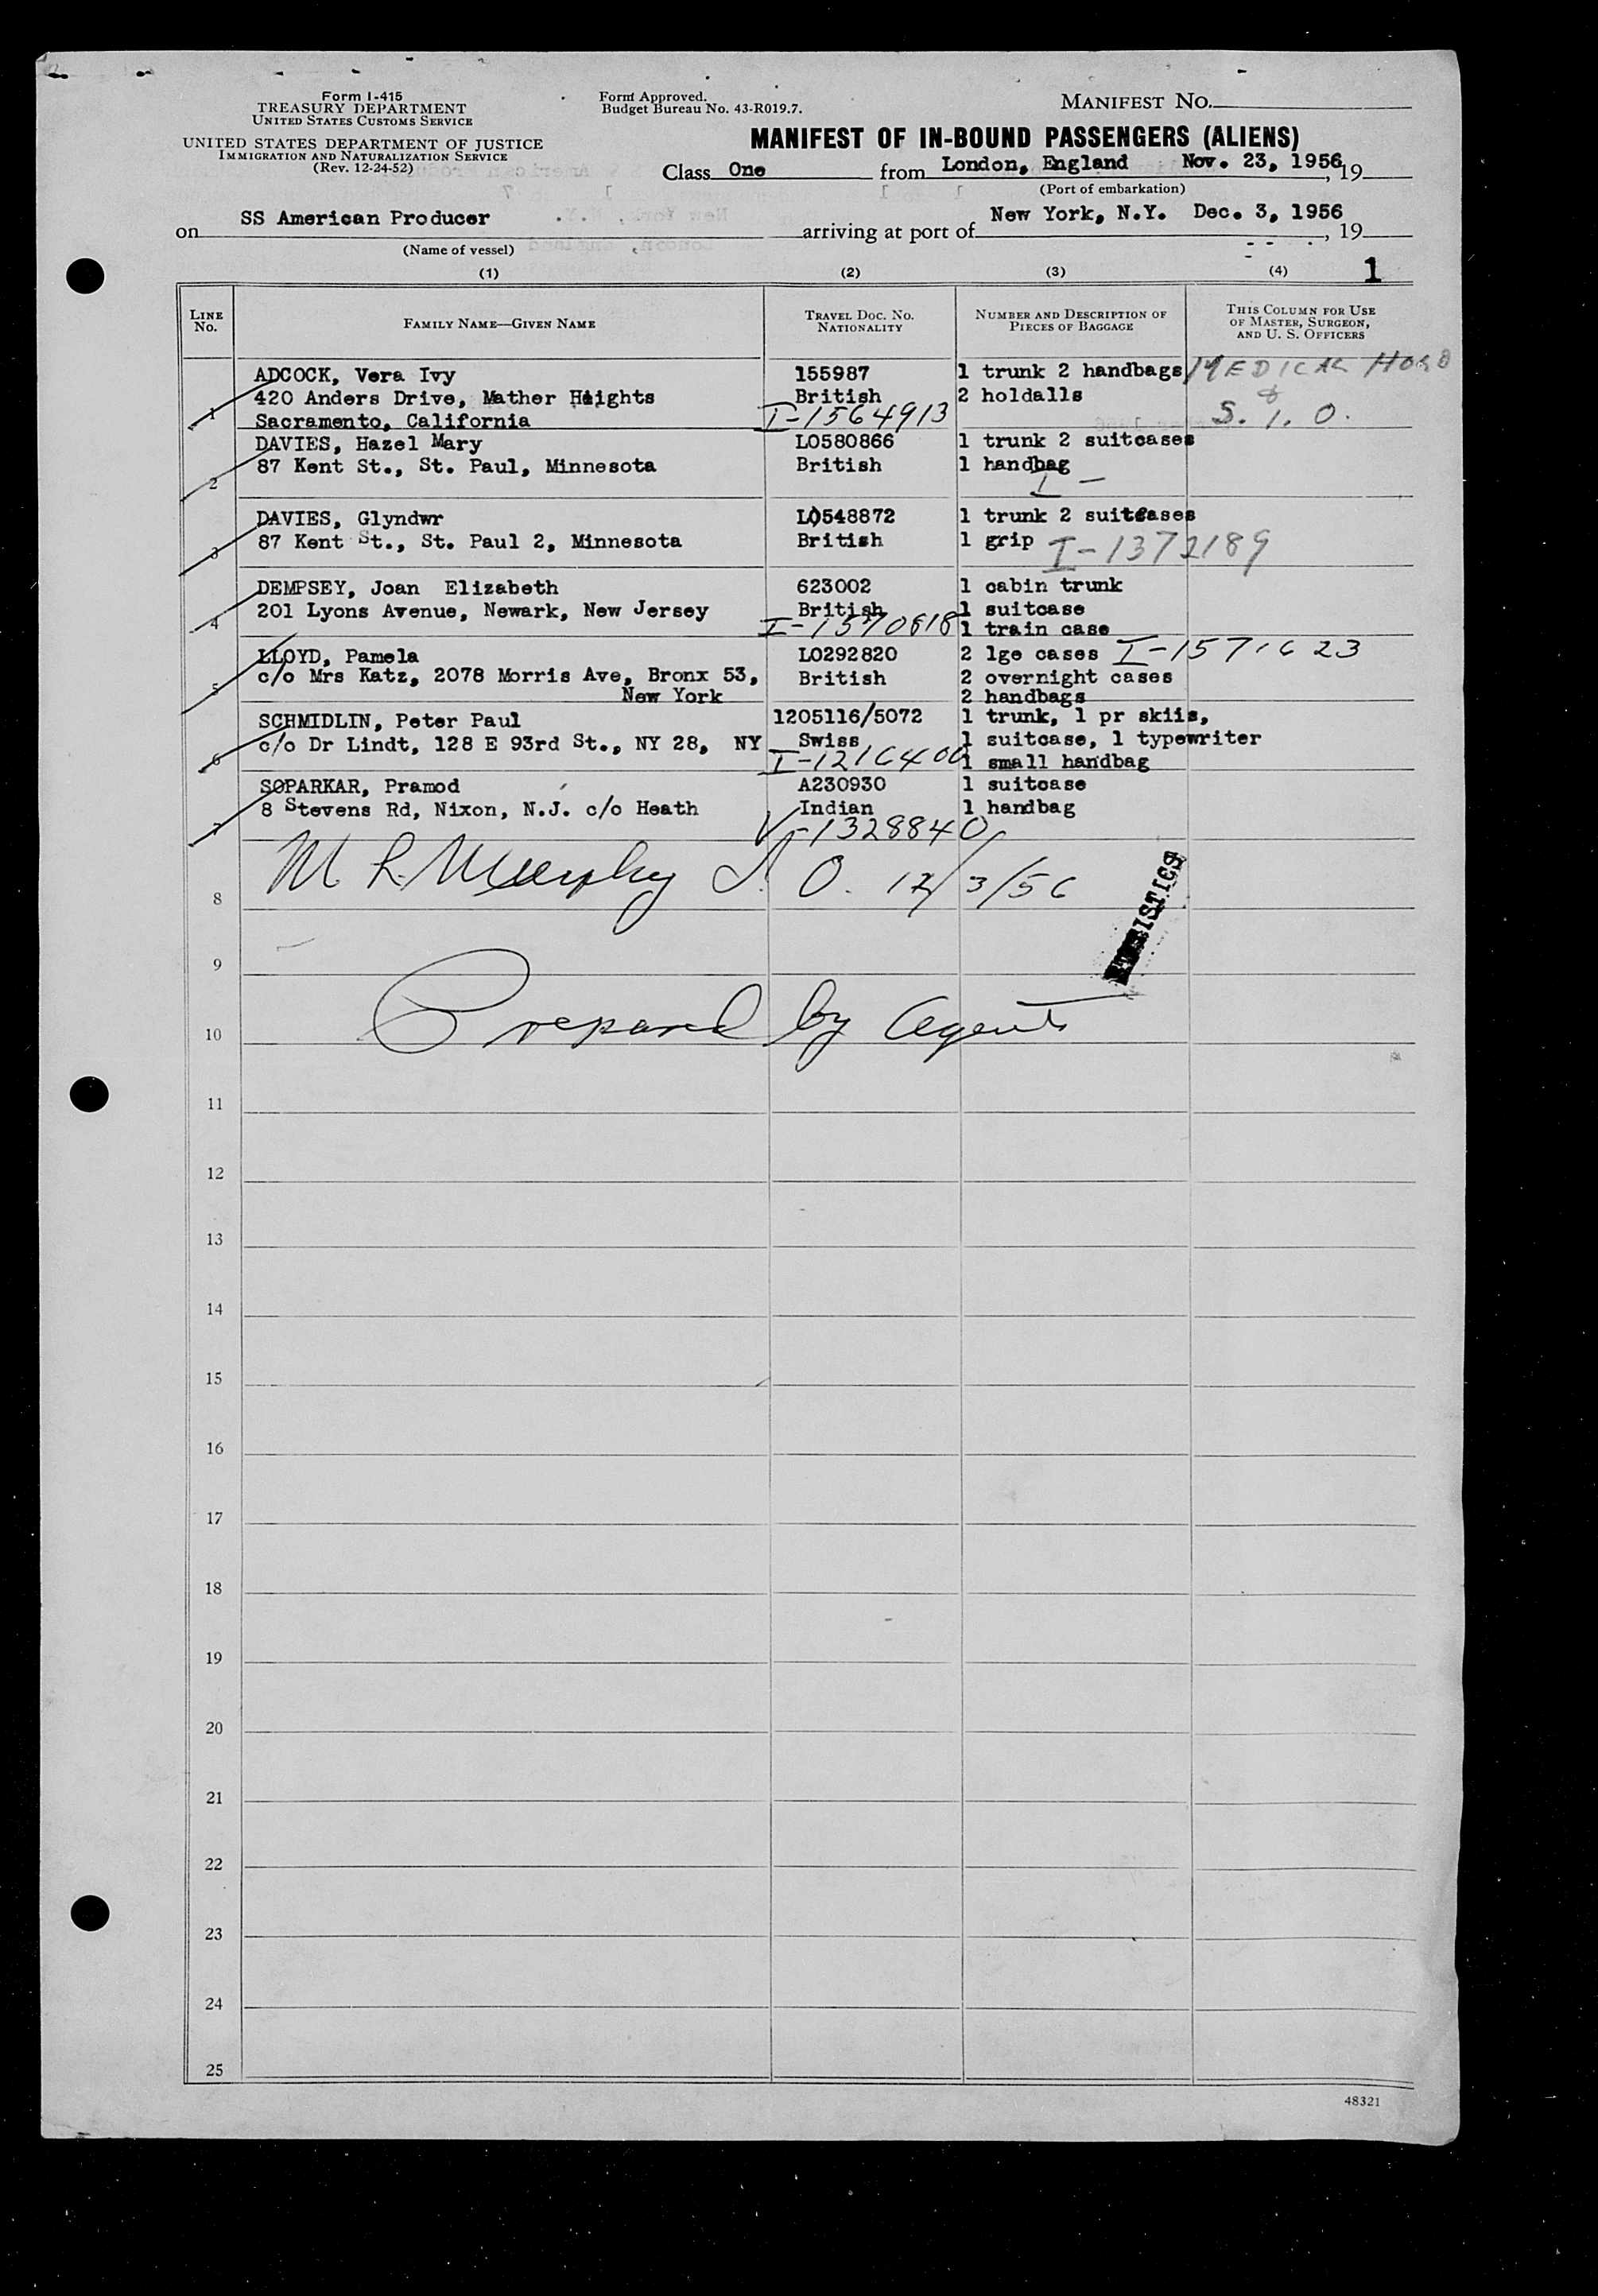 Form I-415
TREASURY DEPARTMENT
UNITED STATES CUSTOMS SERVICE
UNITED STATES DEPARTMENT OF JUSTICE
IMMIGRATION AND NATURALIZATION SERVICE
(Rev. 12-24-52)
Form Approved.
Budget Bureau No. 43-R019.7.
MANIFEST NO.
MANIFEST OF IN-BOUND PASSENGERS (ALIENS)
Class One from London, England Nov. 23, 1956, 19
(Port of embarkation)
on SS American Producer arriving at port of New York, N.Y. Dec. 3, 1956, 19
(Name of vessel)
(1) (2) (3) (4) 1
LINE No. FAMILY NAME—GIVEN NAME TRAVEL DOC. NO. NATIONALITY NUMBER AND DESCRIPTION OF PIECES OF BAGGAGE THIS COLUMN FOR USE OF MASTER, SURGEON, AND U. S. OFFICERS
ADCOCK, Vera Ivy 155987 1 trunk 2 handbags MEDICAL HOLD
420 Anders Drive, Mather Heights British 2 holdalls &
1 Sacramento, California I-1564913 S. I. O.
DAVIES, Hazel Mary L0580866 1 trunk 2 suitcases
87 Kent St., St. Paul, Minnesota British 1 handbag
2 I -
DAVIES, Glyndwr L0548872 1 trunk 2 suitcases
3 87 Kent St., St. Paul 2, Minnesota British 1 grip I-1372189
DEMPSEY, Joan Elizabeth 623002 1 cabin trunk
201 Lyons Avenue, Newark, New Jersey British 1 suitcase
4 I-1570618 1 train case
LLOYD, Pamela L0292820 2 lge cases I-1571623
5 c/o Mrs Katz, 2078 Morris Ave, Bronx 53, British 2 overnight cases
New York 2 handbags
SCHMIDLIN, Peter Paul 1205116/5072 1 trunk, 1 pr skiis,
6 c/o Dr Lindt, 128 E 93rd St., NY 28, NY Swiss 1 suitcase, 1 typewriter
I-1216400 1 small handbag
SOPARKAR, Pramod A230930 1 suitcase
8 Stevens Rd, Nixon, N.J. c/o Heath Indian 1 handbag
7 V-1328840
8 M. R. Murphy I. O. 12/3/56
9
10 Prepared by Agents
11
12
13
14
15
16
17
18
19
20
21
22
23
24
25
48321